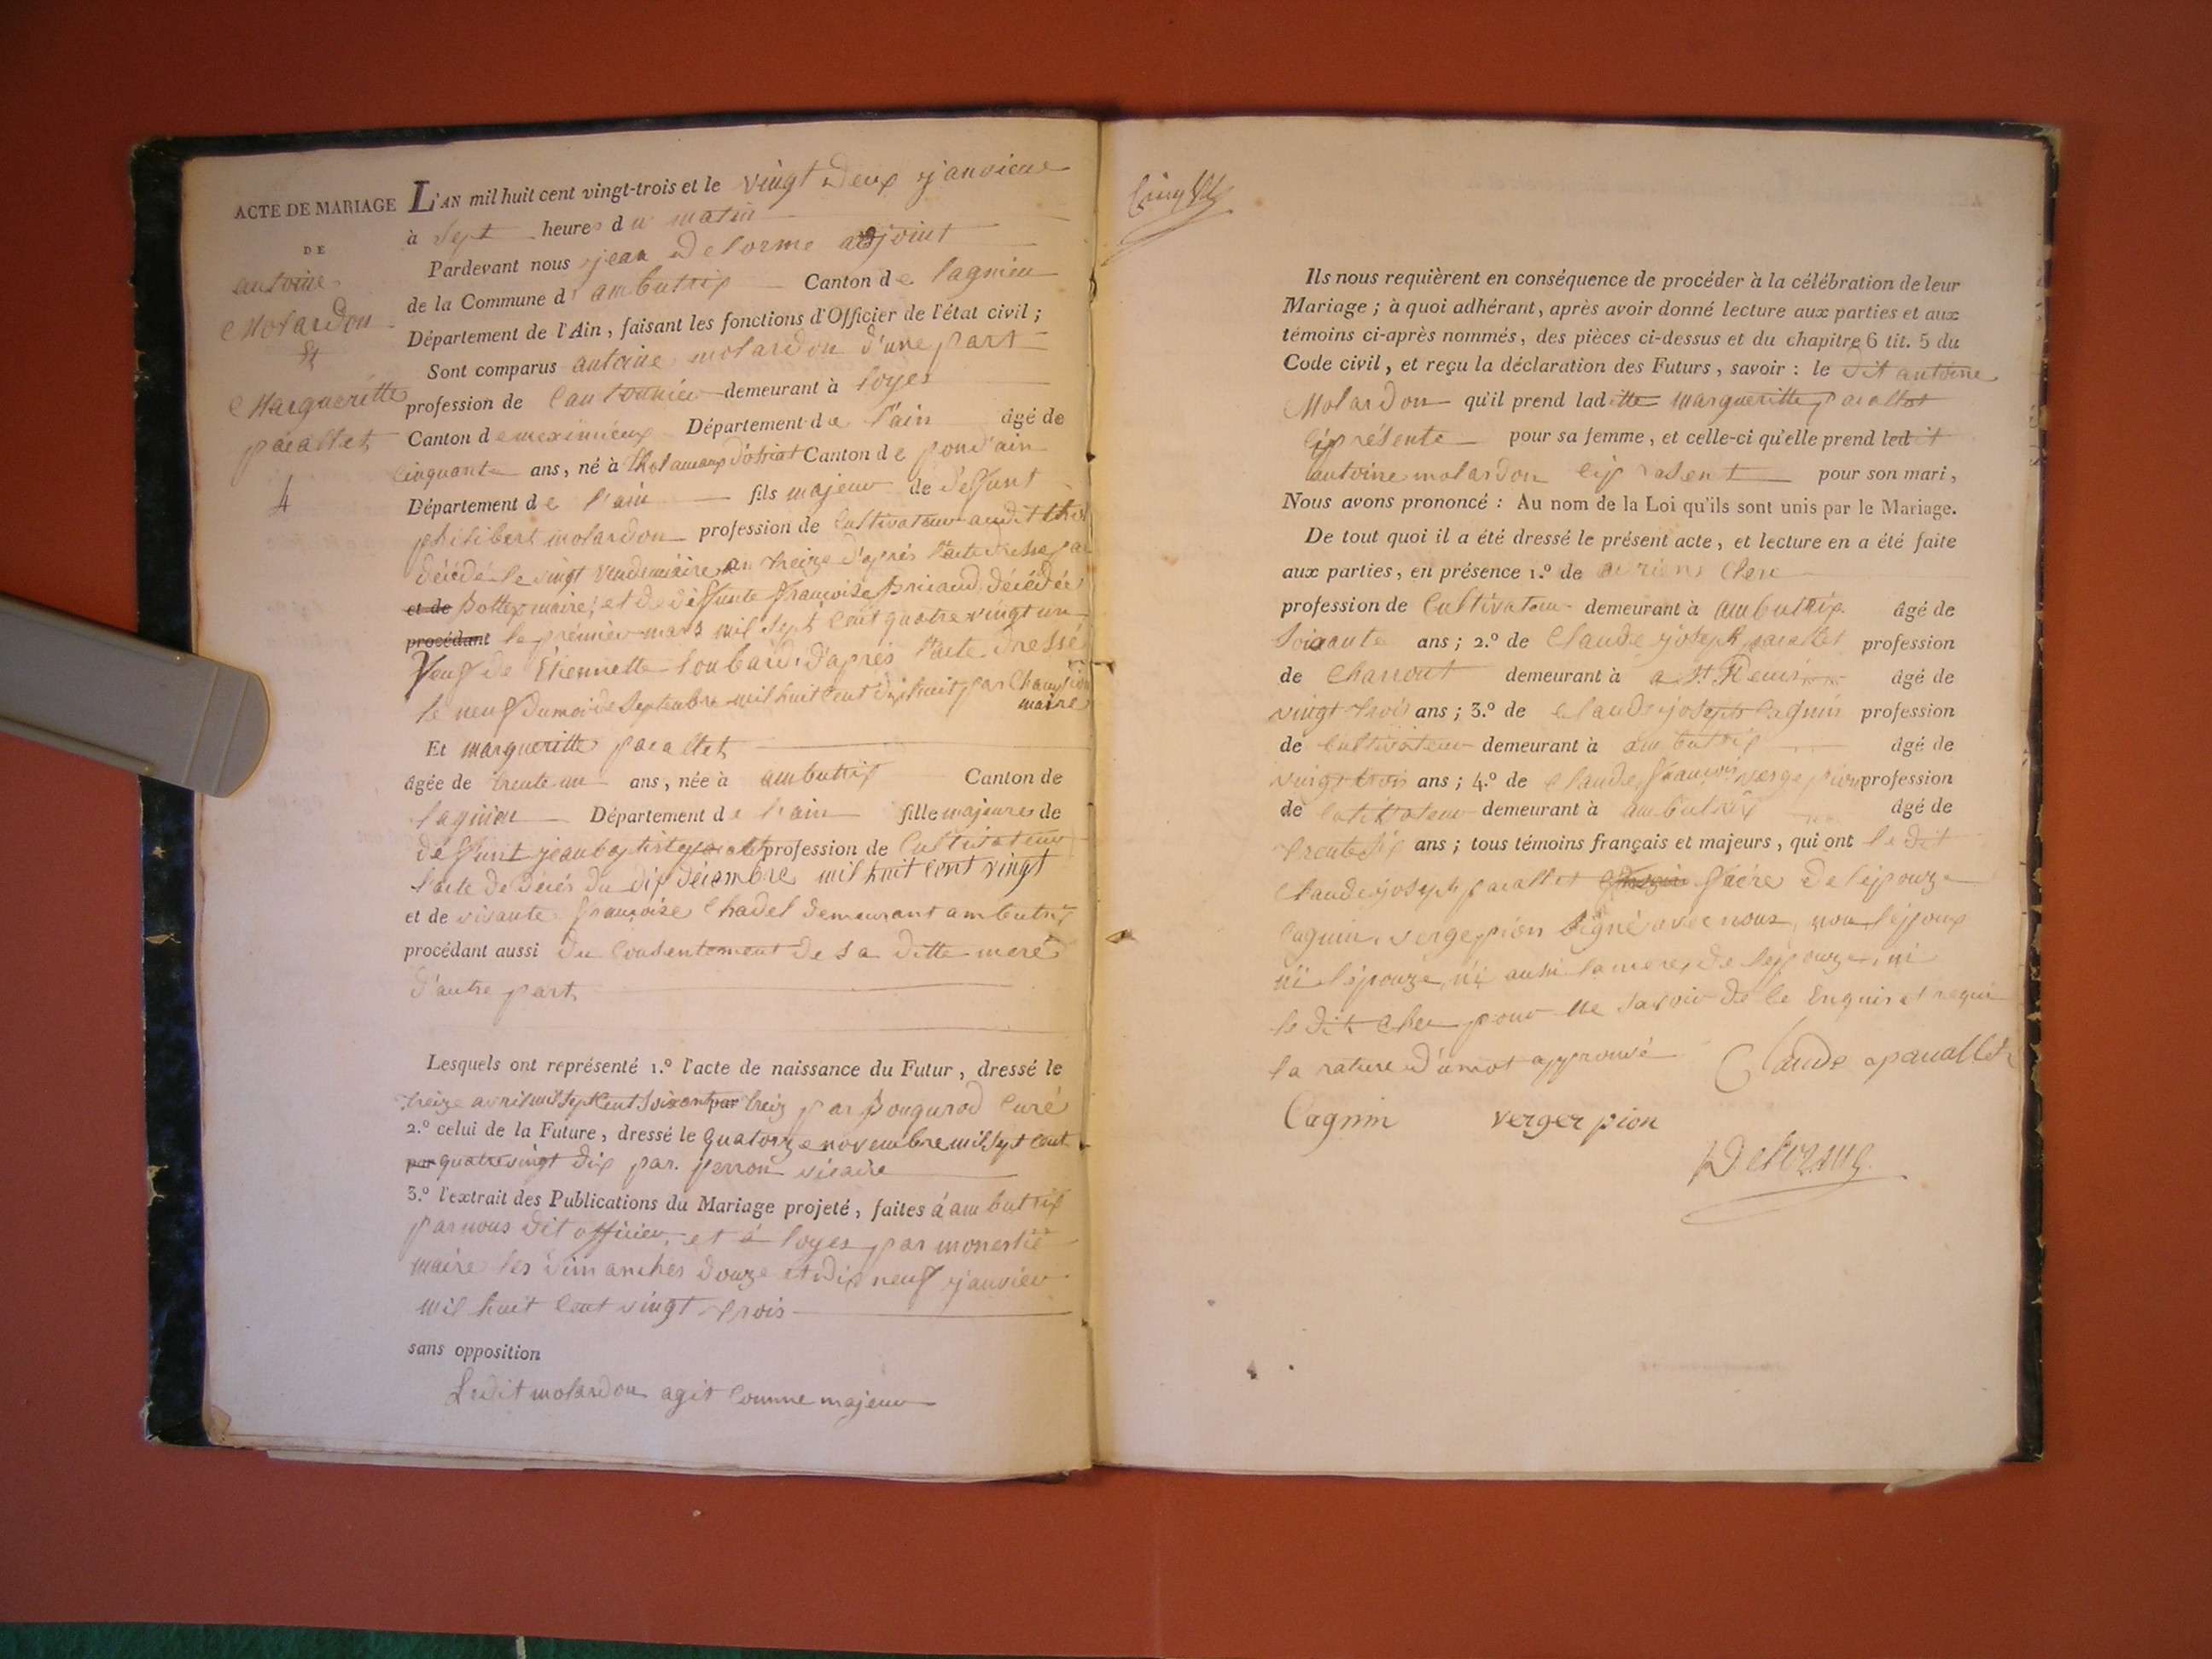 ACTE DE MARIAGE
DE
antoine
Molardon
et
Margueritte
pacallet
4
L'AN mil huit cent vingt-trois et le vingt deux janvier
à sept heures du matin
Pardevant nous jean Delorme adjoint
de la Commune d'ambutrix Canton de lagnieu
Département de l'Ain, faisant les fonctions d'Officier de l'état civil ;
Sont comparus antoine molardon d'une part
profession de demeurant à loyes
Canton de meximieux Département de l'ain âgé de
cinquante ans, né à Canton de pondain
Département de l'ain fils majeur de deffunt
philibert molardon profession de cultivateur audit
décédé le vingt vendemiaire an treize d'après l'acte dressé par
et de Bottex maire, et de deffunte françoise Briand décédée
procédant le premier mars mil sept cent quatre vingt un
Veuf de Etiennette loubard d'après l'acte dressé
le neuf du moi de Septembre mil huit cent dix huit par Champion
maire
Et margueritte pacallet
âgée de trente un ans, née à ambutrix Canton de
lagnieu Département de l'ain fille majeure de
deffunt jean baptiste pacallet profession de Cultivateur
l'acte de décés du dix décembre mil huit cent vingt
et de vivante françoise Chadel demeurant ambutrix
procédant aussi du consentement de sa ditte mere
d'autre part
Lesquels ont représenté 1.º l'acte de naissance du Futur, dressé le
treize avril mil sept cent soixante par treize par curé
2.º celui de la Future, dressé le quatorze novembre mil sept cent
par quatre vingt dix par perron vicaire
3.º l'extrait des Publications du Mariage projeté, faites à ambutrix
par nous dit officier, et à loyes par monestié
maire les dimanches douze et dix neuf janvier
mil huit cent vingt trois
sans opposition
Ledit molardon agit comme majeur
Ils nous requièrent en conséquence de procéder à la célébration de leur
Mariage ; à quoi adhérant, après avoir donné lecture aux parties et aux
témoins ci-après nommés, des pièces ci-dessus et du chapitre 6 tit. 5 du
Code civil, et reçu la déclaration des Futurs, savoir : le dit antoine
Molardon qu'il prend laditte margueritte pacallet
ci présente pour sa femme, et celle-ci qu'elle prend ledit
antoine molardon ci présent pour son mari,
Nous avons prononcé : Au nom de la Loi qu'ils sont unis par le Mariage.
De tout quoi il a été dressé le présent acte, et lecture en a été faite
aux parties, en présence 1.º de
profession de Cultivateur demeurant à ambutrix âgé de
soixante ans ; 2.º de Claude joseph pacallet profession
de demeurant à a St Denis âgé de
vingt trois ans ; 3.º de claude joseph cagnin profession
de cultivateur demeurant à ambutrix âgé de
vingt trois ans ; 4.º de claude françois verge pion profession
de cultivateur demeurant à ambutrix âgé de
trente six ans ; tous témoins français et majeurs, qui ont le dit
Claude joseph pacallet frere de l'épouze
cagnin, verge pion signé avec nous, non l'époux
ni l'épouze, ni aussi la mere de l'épouze, ni
le dit pour ne savoir de ce enquis et requis
la rature d'un mot approuvé
Claude pacallet
Cagnin verger pion
Delorme